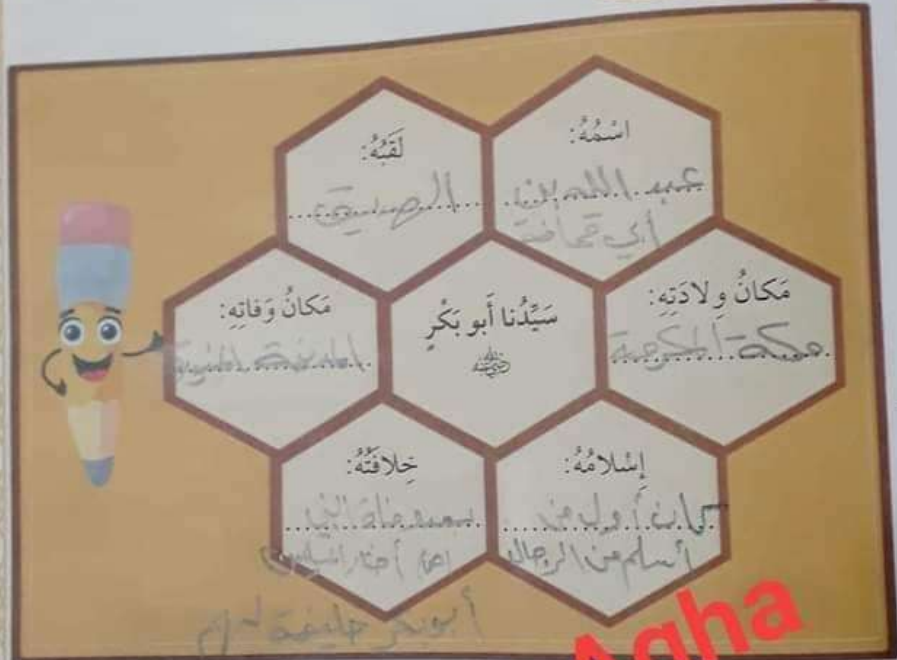 اسْمُهُ:
عبد الله بن
أبي قحافة
لَقَبُهُ:
الصديق
مَكانُ وِلادَتِهِ:
مكة المكرمة
سَيِّدُنا أَبو بَكْرٍ
رضي الله عنه
مَكانُ وَفاتِهِ:
المدينة المنورة
إِسْلامُهُ:
كان أول من
أسلم من الرجال
خِلافَتُهُ:
بعد وفاة النبي
اختار المسلمين
أبو بكر خليفة لهم
Agha